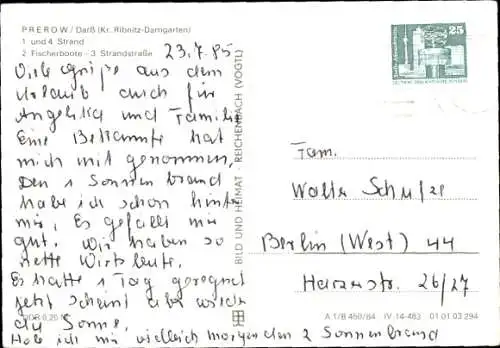 PREROW / Darß (Kr. Ribnitz-Damgarten)
1 und 4 Strand
2 Fischerboote - 3 Strandstraße
23.7.85
Viele Grüße aus dem
Urlaub auch für
Angelika und Familie
Eine Bekannte hat
mich mit genommen.
Den 1 Sonnen brand
habe ich schon hinter
mir, Es gefällt mir
gut. Wir haben so
nette Wirtsleute.
Es hatte 1 Tag geregnet
jetzt scheint aber wieder
die Sonne.
Hole ich mir vielleich morgen den 2 Sonnenbrand
BILD UND HEIMAT · REICHENBACH (VOGTL)
25
Fam.
Walter Schulze
Berlin (West) 44
Harzerstr. 26/27
DDR 0,20 M
A 1/B 450/84 IV-14-483 01 01 03 294